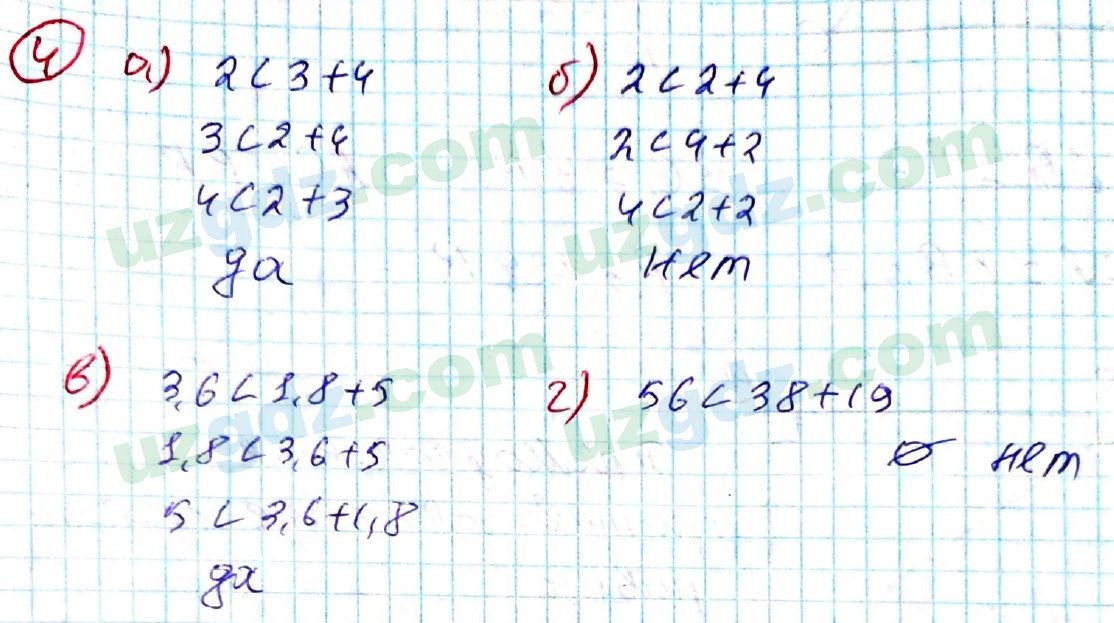 4 а) 2 < 3 + 4
3 < 2 + 4
4 < 2 + 3
да
б) 2 < 2 + 4
2 < 4 + 2
4 < 2 + 2
Нет
в) 3,6 < 1,8 + 5
1,8 < 3,6 + 5
5 < 3,6 + 1,8
да
г) 56 < 38 + 19
нет
uzgdz.com
uzgdz.com
uzgdz.com
uzgdz.com